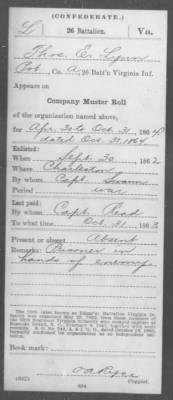 (CONFEDERATE.)
L 26 Battalion. Va.
Thos. E. Lynn
Pvt, Co. A, 26 Batt'n Virginia Inf.
Appears on
Company Muster Roll
of the organization named above,
for Apr. 30 to Oct. 31, 1864.
dated Oct. 31, 1864
Enlisted:
When Sept. 30, 1862
Where Charleston
By whom Capt. Swann
Period war
Last paid:
By whom Capt. Read
To what time Oct. 31, 1863
Present or absent Absent
Remarks: Prisoner in
hands of enemy
Book mark:
(642)
Copyist.